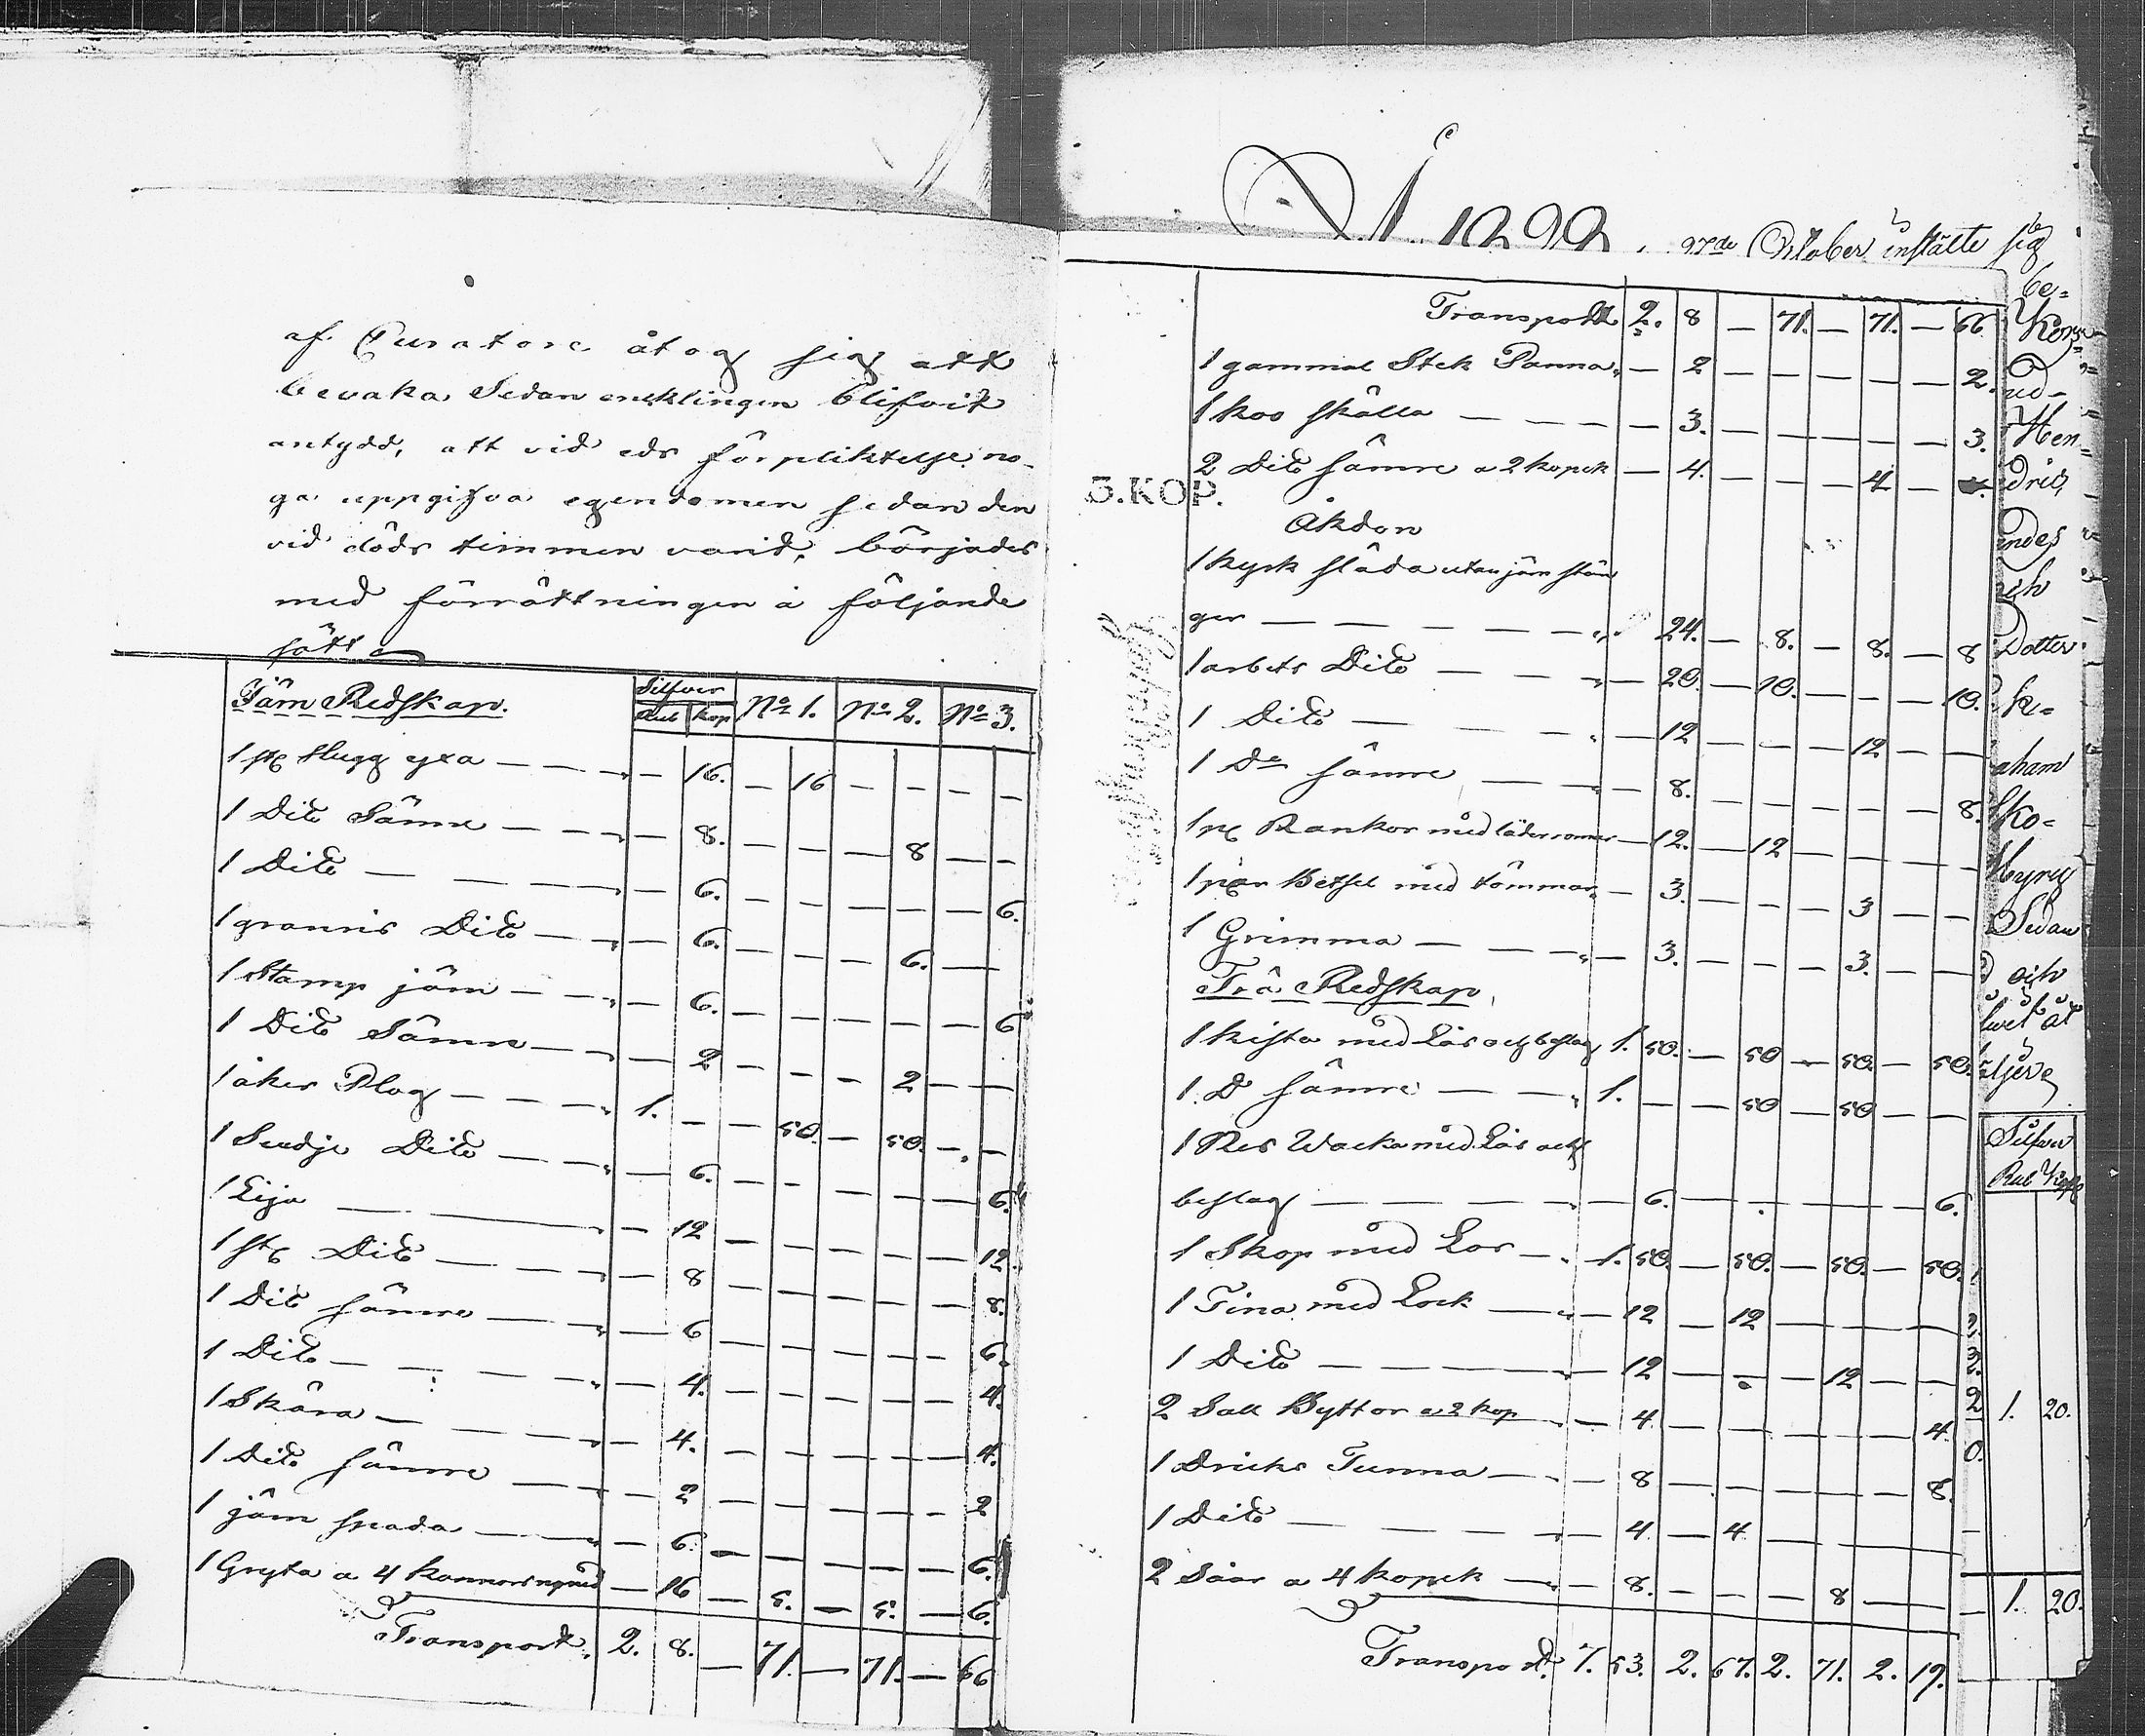 af Curatore åtog sig att
bevaka Sedan encklingen blifvit
antydd, att vid eds förpliktelse no-
ga uppgifva egendomen sedan den
vid döds timmen varit, börjades
med förrättningen å följande
sätt
Järn Redskap. Silfver Rub kop No 1. No 2. No 3.
1 st hugg yxa — — — 16. — 16 — — — —
1 Dito Sämre — — — 8. — — — 8 — —
1 Dito — — — 6. — — — — — 6.
1 Dito — — 6. — — — 6. —
1 Stamp järn — — — 6. — — — — — 6
1 Dito Sämre — — — 2 — — — 2 — —
1 åker Plog — — — 1. — — 50. — 50. — —
1 Dito — — — 6. — — — — — 6.
1 Lija — — 12 — — — — — 12.
1 st Dito — — — 8 — — — — — 8.
1 Dito sämre — — — 6 — — — — — 6.
1 Dito — — — 4. — — — — — 4.
1 Skära — — 4. — — — — — 4.
1 Dito sämre — — 2 — — — — — 2
1 järn spada — — — 6. — — — — — 6.
1 Gryta a 4 kannors — 16 — 5. — 5. — 6.
Transport. 2. 8. — 71. — 71. — 66
27de October instälte sig
Transport 2. 8 — 71. — 71. — 66
1 gammal Stek Panna — 2 — — — — — 2.
1 koo skälla — — — 3. — — — — — 3.
2 Dito sämre a 2 kopek — 4. — — — 4 —
3.KOP.
Åkdon
1 kyrk släda utan järn stän
ger — — — — 24. — 8. — 8. — 8
1 arbets Dito — — — 20. — 10. — — — 10.
1 Dito — — — 12 — — — 12 — —
1 Do sämre — — 8. — — — — — 8.
1 pr Rankor med läder — 12. — 12 — — — —
1 par Betsel med tömmar — 3. — — — 3 — —
1 Grimma — — — 3. — — — 3. — —
Trä Redskap
1 kista med Lås och beslag 1. 50. — 50 — 50. — 50.
1 D sämre — — 1. — — 50 — 50 — —
1 Res Wacka med Lås och
beslag — — — 6. — — — — 6.
1 Skop med — 1. 50. — 50. — 50. — 50.
1 Tina med Lock — — 12 — 12 — — — —
1 Dito — — — 12 — — — 12 — —
2 Byttor a 2 kop — 4. — — — — — 4.
1 Dricks Tunna — — 8 — — — — — 8.
1 Dito — — — 4. — 4 — — — —
2 Såar a 4 kopek — — 8. — — — 8 — —
Transport. 7. 53. 2. 67. 2. 71. 2. 19.
be=
ud=
Hen=
dric
Dotter
aham
Sedan
och
Silfver
Rub Kop
1. 20.
1. 20.